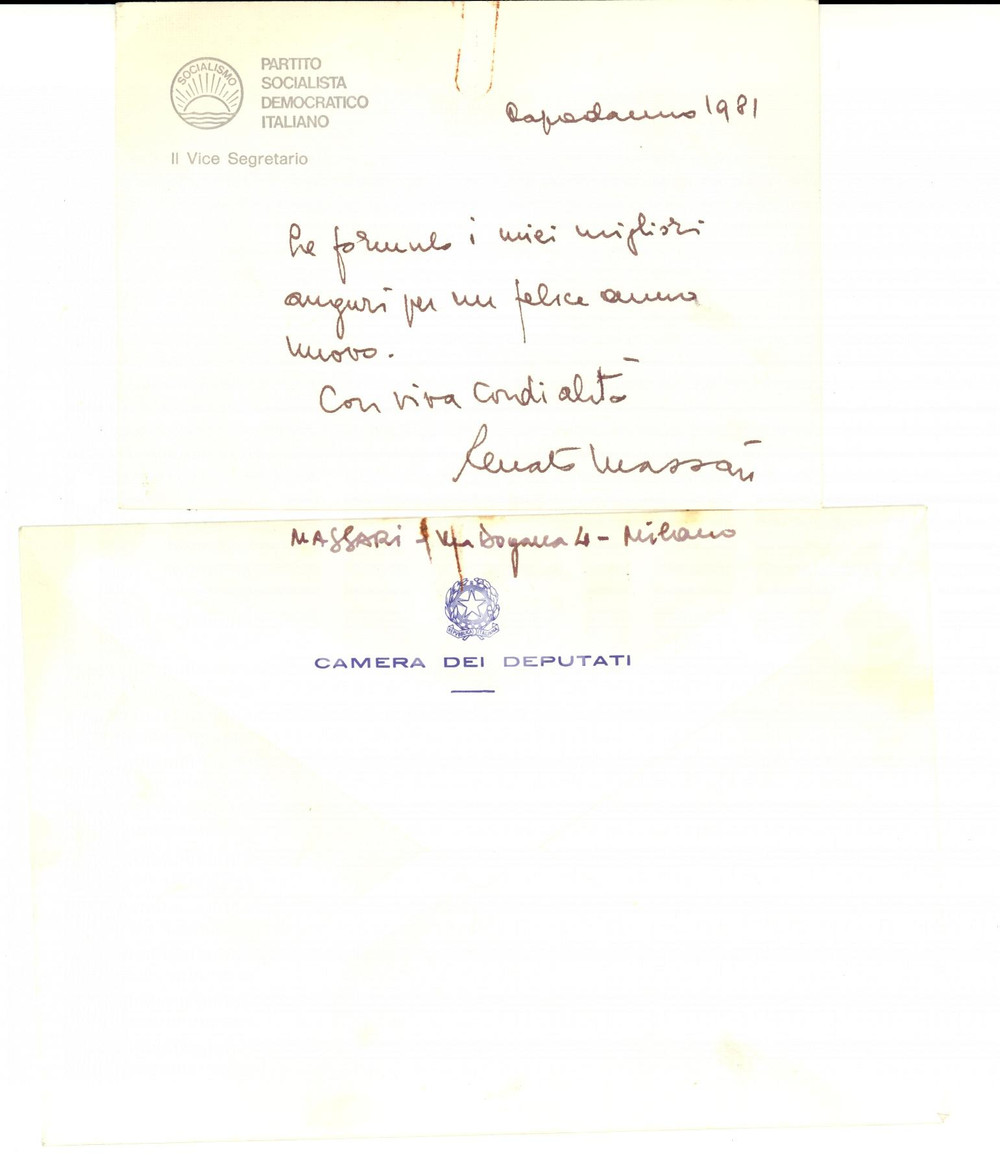 SOCIALISMO
PARTITO
SOCIALISTA
DEMOCRATICO
ITALIANO
Il Vice Segretario
Capodanno 1981
Le formulo i miei migliori
auguri per un felice anno
nuovo.
Con viva cordialità
Renato Massari
MASSARI - Via Dogana 4 - Milano
REPVBBLICA ITALIANA
CAMERA DEI DEPUTATI